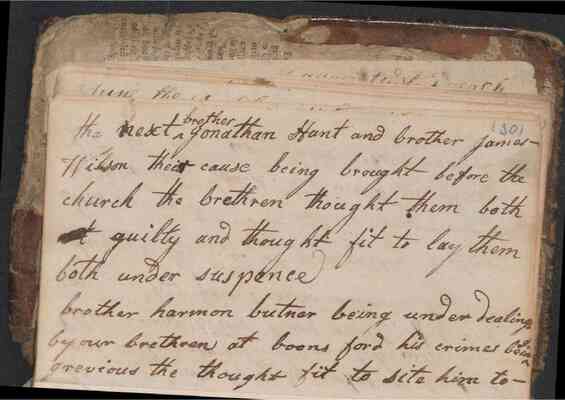 1801
the next ^ brother Jonathan Hunt and brother james
Wilson their cause being brought before the
church the brethren thought them both
guilty and thought fit to lay them
both under suspence
brother harmon butner being under dealing
by our brethren at boons ford his crimes being
grevious the thought fit to site him to-